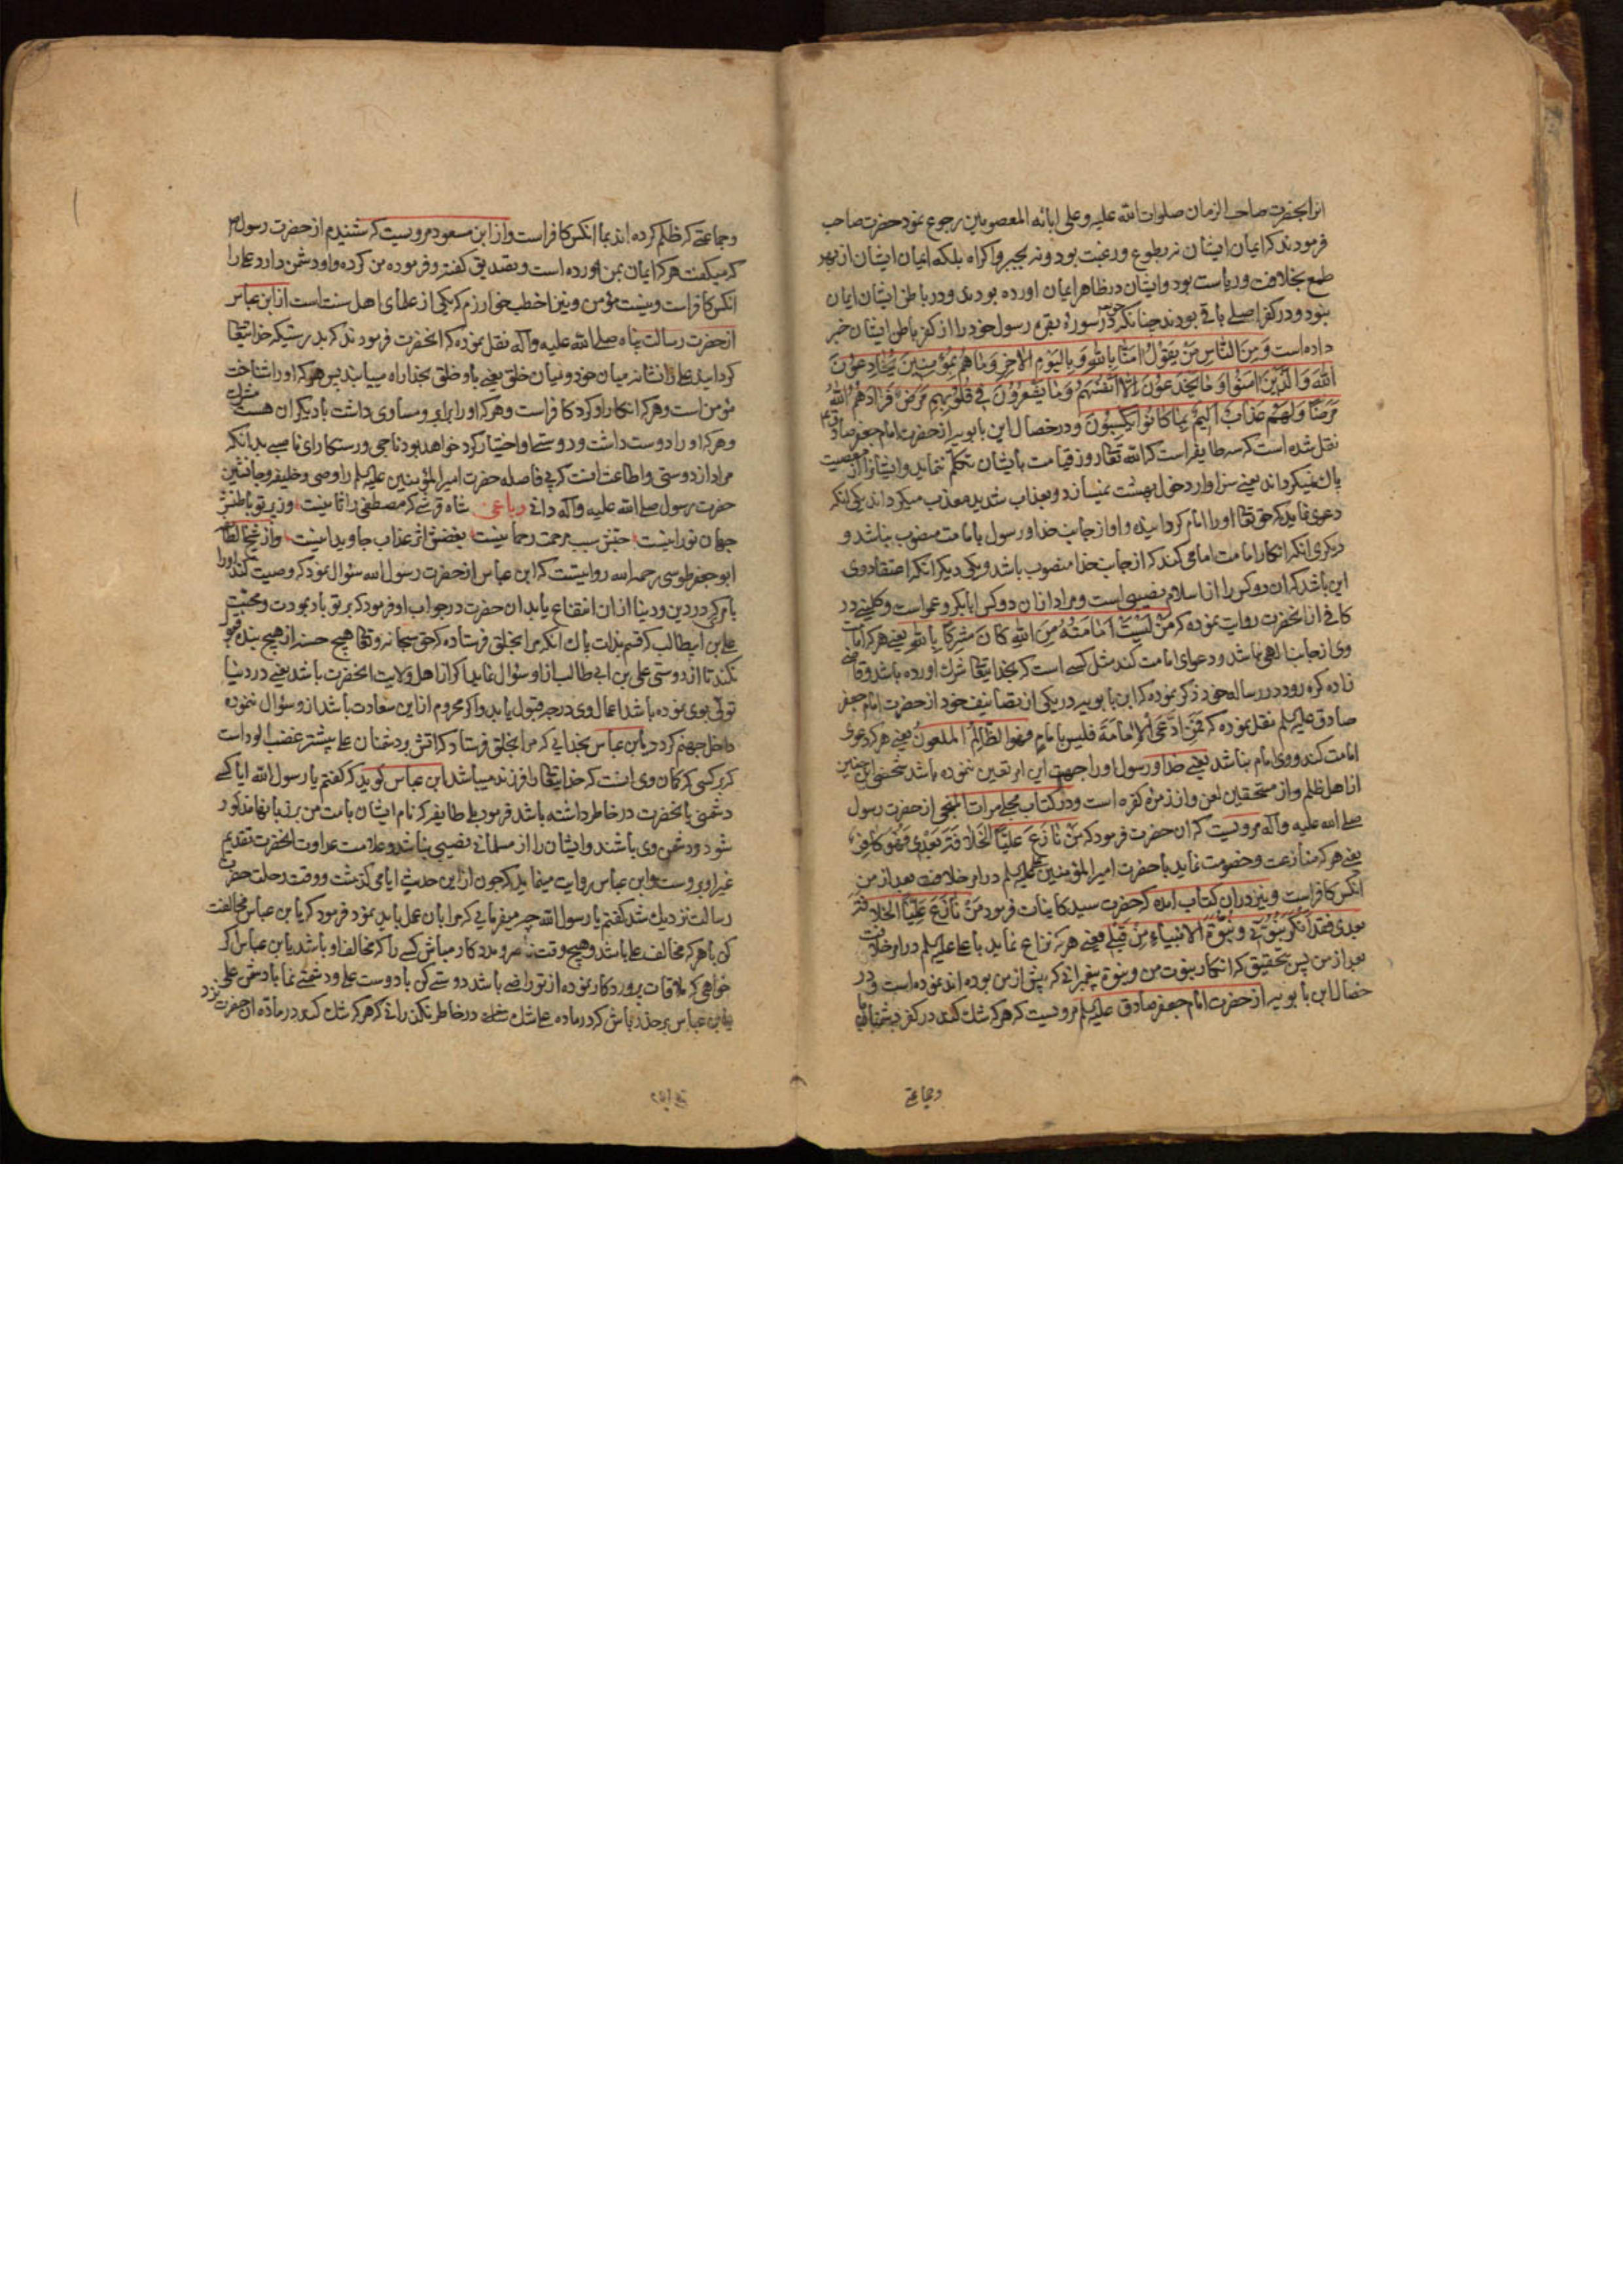 انرا بحضرت صاحب الزمان صلوات الله عليه وعلى ابائه المعصومين رجوع نمود حضرت صاحب
فرمودند که ایمان ایشان نه بطوع و رغبت بود و نه بجبر و اکراه بلکه ایمان ایشان از بهر
طمع بخلافت و ریاست بود و ایشان در ظاهر ایمان اورده بودند و در باطن ایشان ایمان
نبود و در کفر اصلی باقی بودند چنانکه در سوره بقره رسول خود را از کفر باطن ایشان خبر
داده است وَمِنَ النَّاسِ مَنْ يَقُولُ امَنَّا بِاللهِ وَبِالْيَوْمِ الاخِرِ وَمَا هُمْ بِمُؤْمِنِينَ يُخَادِعُونَ
اللهَ وَالَّذِينَ امَنُوا وَمَا يَخْدَعُونَ اِلَّا اَنْفُسَهُمْ وَمَا يَشْعُرُونَ فِي قُلُوبِهِمْ مَرَضٌ فَزَادَهُمُ اللهُ
مَرَضًا وَلَهُمْ عَذَابٌ اَلِيمٌ بِمَا كَانُوا يَكْسِبُونَ و در خصال ابن بابویه از حضرت امام جعفر صادق
نقل شده است که سه طایفه است که الله تعالی روز قیامت بایشان تکلم ننماید و ایشانرا از معصیت
پاك نمیکرداند یعنی سزاوار دخول بهشت نمیسازد و بعذاب شدید معذب میکرداند یکی انکه
دعوی نماید که حق تعالی او را امام کردانیده و او از جانب خدا و رسول بامامت منصوب نباشد و
دیکری انکه انکار امامت امامی کند که از جانب خدا منصوب باشد و یکی دیکر انکه اعتقاد وی
این باشد که ان دو کس را از اسلام نصیبی است و مراد از ان دو کس ابابکر و عمر است و کلینی در
کافی از انحضرت روایت نموده که مَنْ لَيْسَتْ اِمَامَتُهُ مِنَ اللهِ كَانَ مُشْرِكًا بِاللهِ یعنی هر که امامت
وی از جانب الهی نباشد و دعوای امامت کند مثل کسی است که بخدایتعالی شرك اورده باشد و قاضی
زاده کره رود در رساله خود ذکر نموده که ابن بابویه در یکی از تصانیف خود از حضرت امام جعفر
صادق علیه السلم نقل نموده که فَمَنِ ادَّعَى الاِمَامَةَ فليس بامامٍ فهو الظَّالِمُ الملعونُ یعنی هر که دعوی
امامت کند و وی امام نباشد یعنی خدا و رسول او را جهت این امر تعین ننموده باشد شخصی این چنین
از اهل ظلم و از مستحقین لعن و از زمره کفره است و در کتاب مجلی مرات المنجی از حضرت رسول
صلی الله علیه واله مرویست که ان حضرت فرمود که مَنْ نَازَعَ عَلِيًّا الْخِلَافَةَ بَعْدِي فَهُوَ كَافِرٌ
یعنی هر که منازعت و خصومت نماید با حضرت امیر المؤمنین علیه السلم در امر خلافت بعد از من
انکس کافر است و نیز در ان کتاب امده که حضرت سید کاینات فرمود مَنْ نَازَعَ عَلِيًّا الخلافة
بعدي فقد انكر نُبُوَّتِي و نُبُوَّةَ الانبياءِ مِنْ قَبْلِي یعنی هر که نزاع نماید با علی علیه السلم در امر خلافت
بعد از من پس بتحقیق که انکار نبوت من و نبوة پیغمبرانی که پیش از من بوده اند نموده است و در
خصال ابن بابویه از حضرت امام جعفر صادق علیه السلم مرویست که هر که شك کند در کفر دشمنان ما
وجماعتی
وجماعتی که ظلم کرده اند بما انکس کافر است و از ابن مسعود مرویست که شنیدم از حضرت رسول
که میکفت هر که ایمان بمن اورده است و تصدیق کفته و فرموده من کرده و او دشمن دارد علی را
انکس کافر است و نیست مؤمن و نیز اخطب خوارزم که یکی از علمای اهل سنت است از ابن عباس
از حضرت رسالت پناه صلی الله علیه واله نقل نموده که انحضرت فرمودند که بدرستیکه خدایتعالی
کردانید علی را نشانه میان خود و میان خلق یعنی باو خلق بخدا راه مییابند پس هر که او را شناخت
مؤمن است و هر که انکار او کرد کافر است و هر که او را برابر و مساوی داشت با دیکران مشرك هست
و هر که او را دوست داشت و دوستی او اختیار کرد خواهد بود ناجی و رستکار ای ناصبی بدانکه
مراد از دوستی و اطاعت انست که بی فاصله حضرت امیر المؤمنین علیه السلم را وصی و خلیفه و جانشین
حضرت رسول صلی الله علیه واله دانی رباعی شاه قرشی که مصطفی را ثانیست وز پرتو باطنش
جهان نورانیست حبش سبب مرحمت رحمانیست بغضش اثر عذاب جاویدانیست و از شیخ الطایفه
ابو جعفر طوسی رحمه الله روایتست که ابن عباس از حضرت رسول الله سؤال نمود که وصیت کند او را
بامری که در دین و دنیا از ان انتفاع یابد ان حضرت در جواب او فرمود که بر تو باد بمودت و محبت
علی بن ابیطالب که قسم بذات پاك انکه مرا بخلق فرستاده که حق سبحانه و تعالی هیچ حسنه از هیچ بنده قبول
نکند تا از دوستی علی بن ابی طالب از او سؤال نماید اکر از اهل ولایت انحضرت باشد یعنی در دنیا
تولی بوی نموده باشد اعمال وی درجه قبول یابد و اکر محروم از این سعادت باشد از و سؤال ننموده
داخل جهنم کردد یا بن عباس بخدایی که مرا بخلق فرستاد که اتش بر دشمنان علی بیشتر غضب الود است
که بر کسی که کمان وی انست که خدایتعالی را فرزند میباشد ابن عباس کوید که کفتم یا رسول الله ایا کسی
دشمنی بانحضرت در خاطر داشته باشد فرمود بلی طایفه که نام ایشان بامت من بر زبانها مذکور
شود و دشمن وی باشند و ایشان را از مسلمانی نصیبی نباشد و علامت عداوت انحضرت تقدیم
غیر او بروست و ابن عباس روایت مینماید که چون از این حدیث ایامی کذشت و وقت رحلت حضرت
رسالت نزدیك شد کفتم یا رسول الله چه میفرمایی که مرا بان عمل باید نمود فرمود که یا بن عباس مخالفت
کن با هر که مخالف علی باشد و هیچ وقت ناصر و مددکار مباش کسی را که مخالف او باشد یا بن عباس اکر
خواهی که ملاقات پروردکار نموده از تو راضی باشد دوستی کن با دوست علی و دشمنی نما با دشمن علی
یا بن عباس بر حذر باش که در ماده علی شك در خاطر نکذرانی که هر که شك کند در ماده ان حضرت نزد